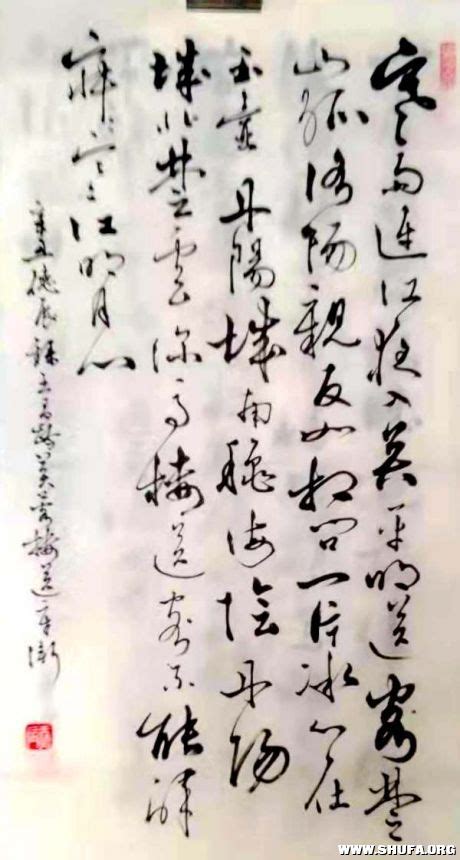 寒雨連江夜入吴平明送客楚
山孤洛陽親友如相問一片冰心在
玉壺丹陽城南秋海陰丹陽
城北楚雲深高樓送客不能醉
寂々寒江明月心
辛丑德辰録王昌齡芙蓉樓送辛漸
WWW.SHUFA.ORG